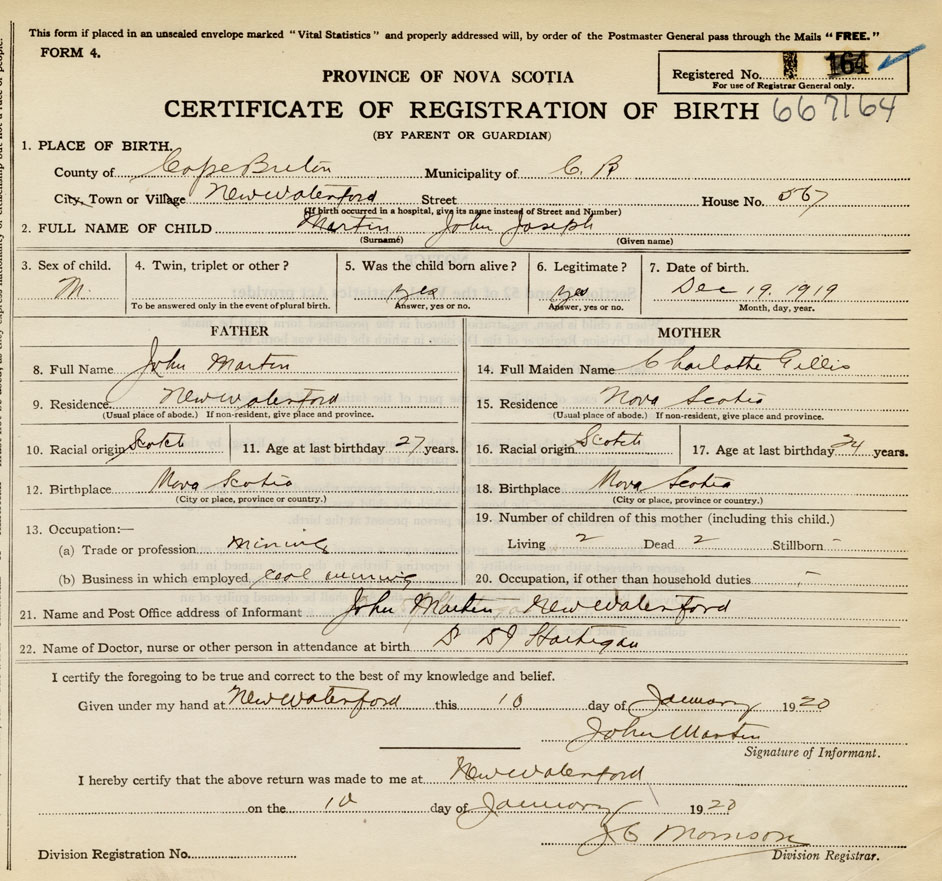 This form if placed in an unsealed envelope marked "Vital Statistics" and properly addressed will, by order of the Postmaster General pass through the Mails "FREE."
FORM 4.
Registered No. 164
For use of Registrar General only.
PROVINCE OF NOVA SCOTIA
CERTIFICATE OF REGISTRATION OF BIRTH 667164
(BY PARENT OR GUARDIAN)
1. PLACE OF BIRTH.
County of Cape Breton Municipality of C. B
City, Town or Village New Waterford Street House No. 567
(If birth occurred in a hospital, give its name instead of Street and Number)
2. FULL NAME OF CHILD Martin John Joseph
(Surname) (Given name)
3. Sex of child. 4. Twin, triplet or other? 5. Was the child born alive? 6. Legitimate? 7. Date of birth.
M. yes yes Dec 19. 1919
To be answered only in the event of plural birth. Answer, yes or no. Answer, yes or no. Month, day, year.
FATHER MOTHER
8. Full Name John Martin 14. Full Maiden Name Charlotte Gillis
9. Residence New Waterford 15. Residence Nova Scotia
(Usual place of abode.) If non-resident, give place and province. (Usual place of abode.) If non-resident, give place and province.
10. Racial origin Scotch 11. Age at last birthday 27 years. 16. Racial origin Scotch 17. Age at last birthday 24 years.
12. Birthplace Nova Scotia 18. Birthplace Nova Scotia
(City or place, province or country.) (City or place, province or country.)
13. Occupation:— 19. Number of children of this mother (including this child.)
(a) Trade or profession mining Living 2 Dead 2 Stillborn -
(b) Business in which employed coal mining 20. Occupation, if other than household duties -
21. Name and Post Office address of Informant John Martin New Waterford
22. Name of Doctor, nurse or other person in attendance at birth Hartigan
I certify the foregoing to be true and correct to the best of my knowledge and belief.
Given under my hand at New Waterford this 10 day of January 1920
John Martin
Signature of Informant.
I hereby certify that the above return was made to me at New Waterford
on the 10 day of January 1920
J C Morrison
Division Registration No. Division Registrar.